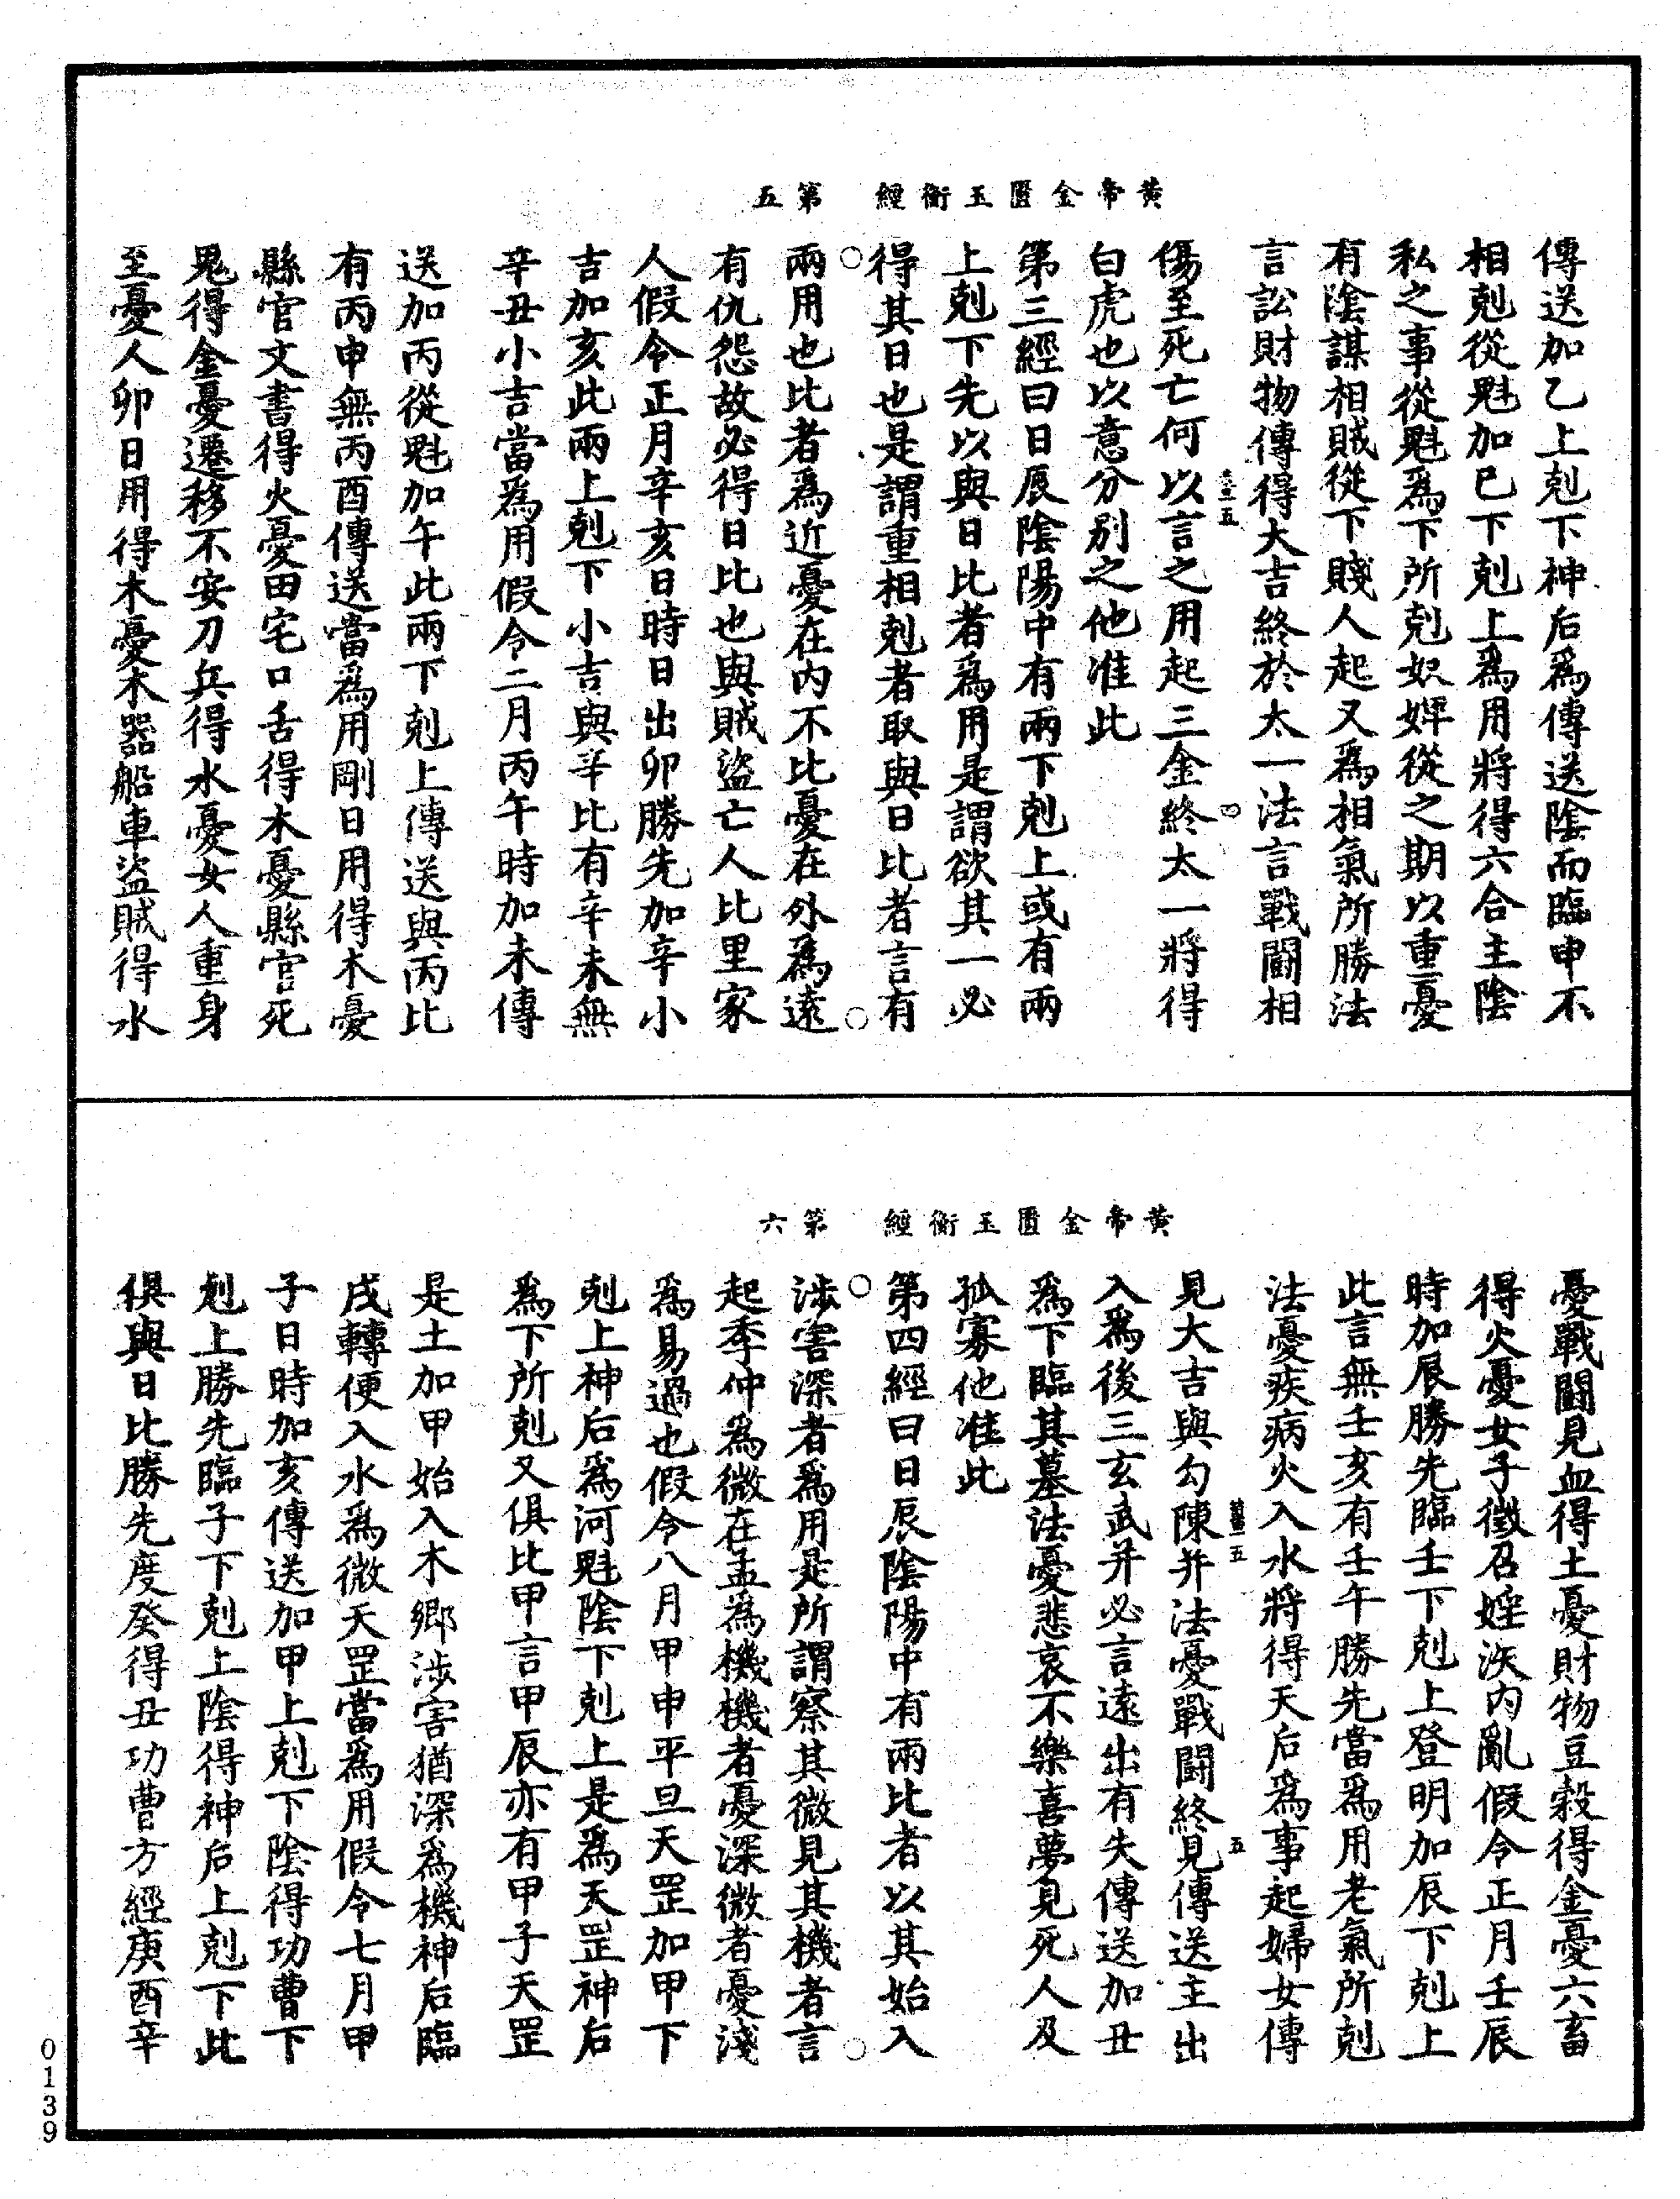 黃帝金匱玉衡經　第五
傳送加乙上剋下神后爲傳送陰而臨申不
相剋從魁加巳下剋上爲用將得六合主陰
私之事從魁爲下所剋奴婢從之期以重憂
有陰謀相賊從下賤人起又爲相氣所勝法
言訟財物傳得大吉終於太一法言戰鬭相
傷至死亡何以言之用起三金終太一將得
白虎也以意分別之他准此
第三經曰日辰陰陽中有兩下剋上或有兩
上剋下先以與日比者爲用是謂欲其一必
得其日也是謂重相剋者取與日比者言有
兩用也比者爲近憂在內不比憂在外爲遠
有仇怨故必得日比也與賊盜亡人比里家
人假令正月辛亥日時日出卯勝先加辛小
吉加亥此兩上剋下小吉與辛比有辛未無
辛丑小吉當爲用假令二月丙午時加未傳
送加丙從魁加午此兩下剋上傳送與丙比
有丙申無丙酉傳送當爲用剛日用得木憂
縣官文書得火憂田宅口舌得木憂縣官死
鬼得金憂遷移不安刀兵得水憂女人重身
至憂人卯日用得木憂木器船車盜賊得水
黃帝金匱玉衡經　第六
憂戰鬭見血得土憂財物豆穀得金憂六畜
得火憂女子徵召婬泆內亂假令正月壬辰
時加辰勝先臨壬下剋上登明加辰下剋上
此言無壬亥有壬午勝先當爲用老氣所剋
法憂疾病火入水將得天后爲事起婦女傳
見大吉與勾陳并法憂戰鬭終見傳送主出
入爲後三玄武并必言遠出有失傳送加丑
爲下臨其墓法憂悲哀不樂喜夢見死人及
孤寡他准此
第四經曰日辰陰陽中有兩比者以其始入
涉害深者爲用是所謂察其微見其機者言
起季仲爲微在孟爲機機者憂深微者憂淺
爲易過也假令八月甲申平旦天罡加甲下
剋上神后爲河魁陰下剋上是爲天罡神后
爲下所剋又俱比甲言甲辰亦有甲子天罡
是土加甲始入木鄉涉害猶深爲機神后臨
戌轉便入水爲微天罡當爲用假令七月甲
子日時加亥傳送加甲上剋下陰得功曹下
剋上勝先臨子下剋上陰得神后上剋下此
俱與日比勝先度癸得丑功曹方經庚酉辛
0139